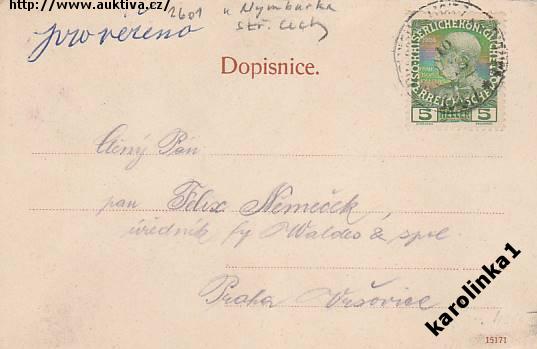 http://www.auktiva.cz/
2601 u Nymburka
stř. Čechy
provezeno
Dopisnice.
KAISERLICHE KÖNIGLICHE ÖSTERREICHISCHE POST
5 HELLER 5
Ctěný Pán
pan Felix Němeček,
úředník fy Waldes & spol.
Praha Vršovice
karolinka1
15171